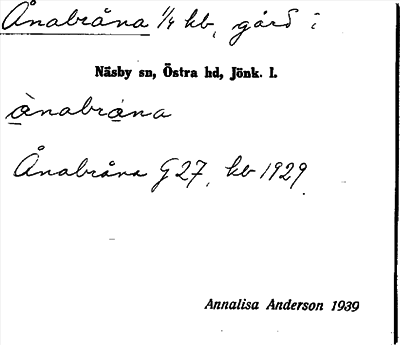 Ånabråna 1/4 hb, gård i
Näsby sn, Östra hd, Jönk. l.
ànabrána
Ånabråna G 27, kb 1929
Annalisa Anderson 1939